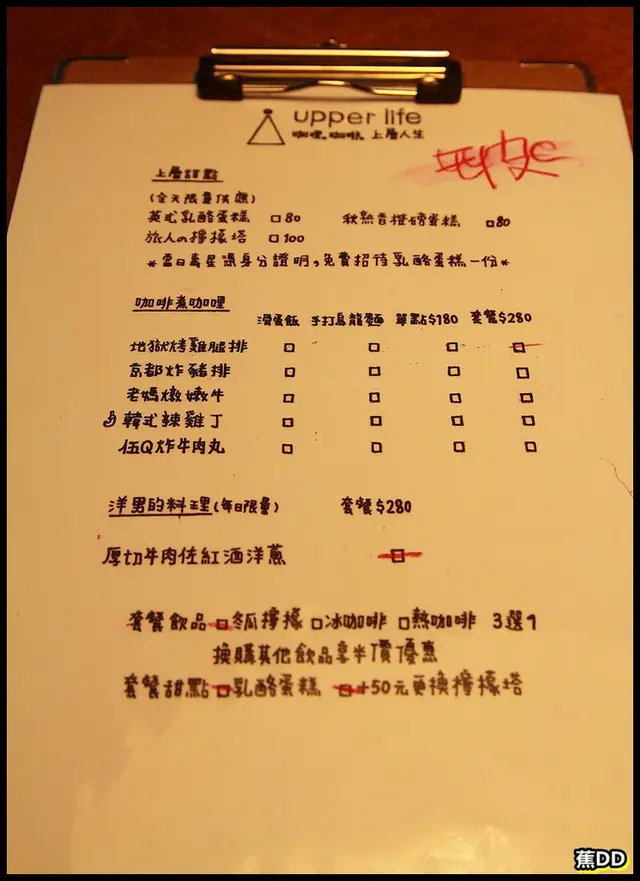 upper life
咖哩、咖啡、上層人生
上層甜點
(全天限量供應)
英式乳酪蛋糕 □80 秋熟香橙磅蛋糕 □80
旅人の檸檬塔 □100
*當日壽星憑身分證明,免費招待乳酪蛋糕一份*
咖啡煮咖哩 滑蛋飯 手打烏龍麵 單點$180 套餐$280
地獄烤雞腿排 □ □ □ □
京都炸豬排 □ □ □ □
老媽燉嫩牛 □ □ □ □
韓式辣雞丁 □ □ □ □
伍Q炸牛肉丸 □ □ □ □
洋男的料理(每日限量) 套餐$280
厚切牛肉佐紅酒洋蔥 □
套餐飲品 □冬瓜檸檬 □冰咖啡 □熱咖啡 3選1
換購其他飲品享半價優惠
套餐甜點 □乳酪蛋糕 □+50元更換檸檬塔
蕉DD